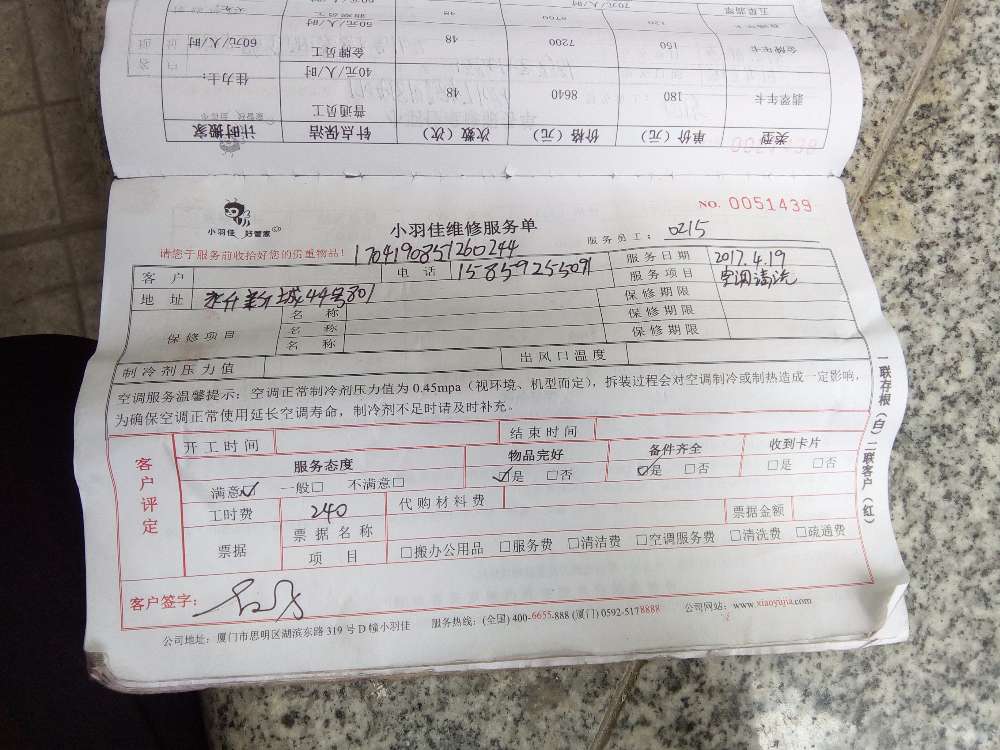 类型 单价（元） 价格（元） 次数（次） 针点保洁 计时搬家
翡翠年卡 180 8640 48 普通员工 40元/人/时 佳力士：
金牌年卡 150 7200 48 金牌员工 50元/人/时 60元/人/时
小羽佳 好管家
小羽佳维修服务单
NO. 0051439
服务员工： 0215
请您于服务前收拾好您的贵重物品！
1704190851260244
客户 电话 15859255091 服务日期 2017.4.19
地址 44号801 服务项目 空调清洗
保修项目
名称 保修期限
名称 保修期限
名称 保修期限
制冷剂压力值 出风口温度
空调服务温馨提示：空调正常制冷剂压力值为 0.45mpa（视环境、机型而定），拆装过程会对空调制冷或制热造成一定影响，
为确保空调正常使用延长空调寿命，制冷剂不足时请及时补充。
客户评定
开工时间 结束时间
服务态度 物品完好 备件齐全 收到卡片
满意☑ 一般□ 不满意□ ☑是 □否 ☑是 □否 □是 □否
工时费 240 代购材料费
票据 票据名称 票据金额
项目 □搬办公用品 □服务费 □清洁费 □空调服务费 □清洗费 □疏通费
客户签字：
一联存根（白）二联客户（红）
公司地址：厦门市思明区湖滨东路 319 号 D 幢小羽佳 服务热线：(全国) 400-6655.888 (厦门) 0592-5178888 公司网站：www.xiaoyujia.com